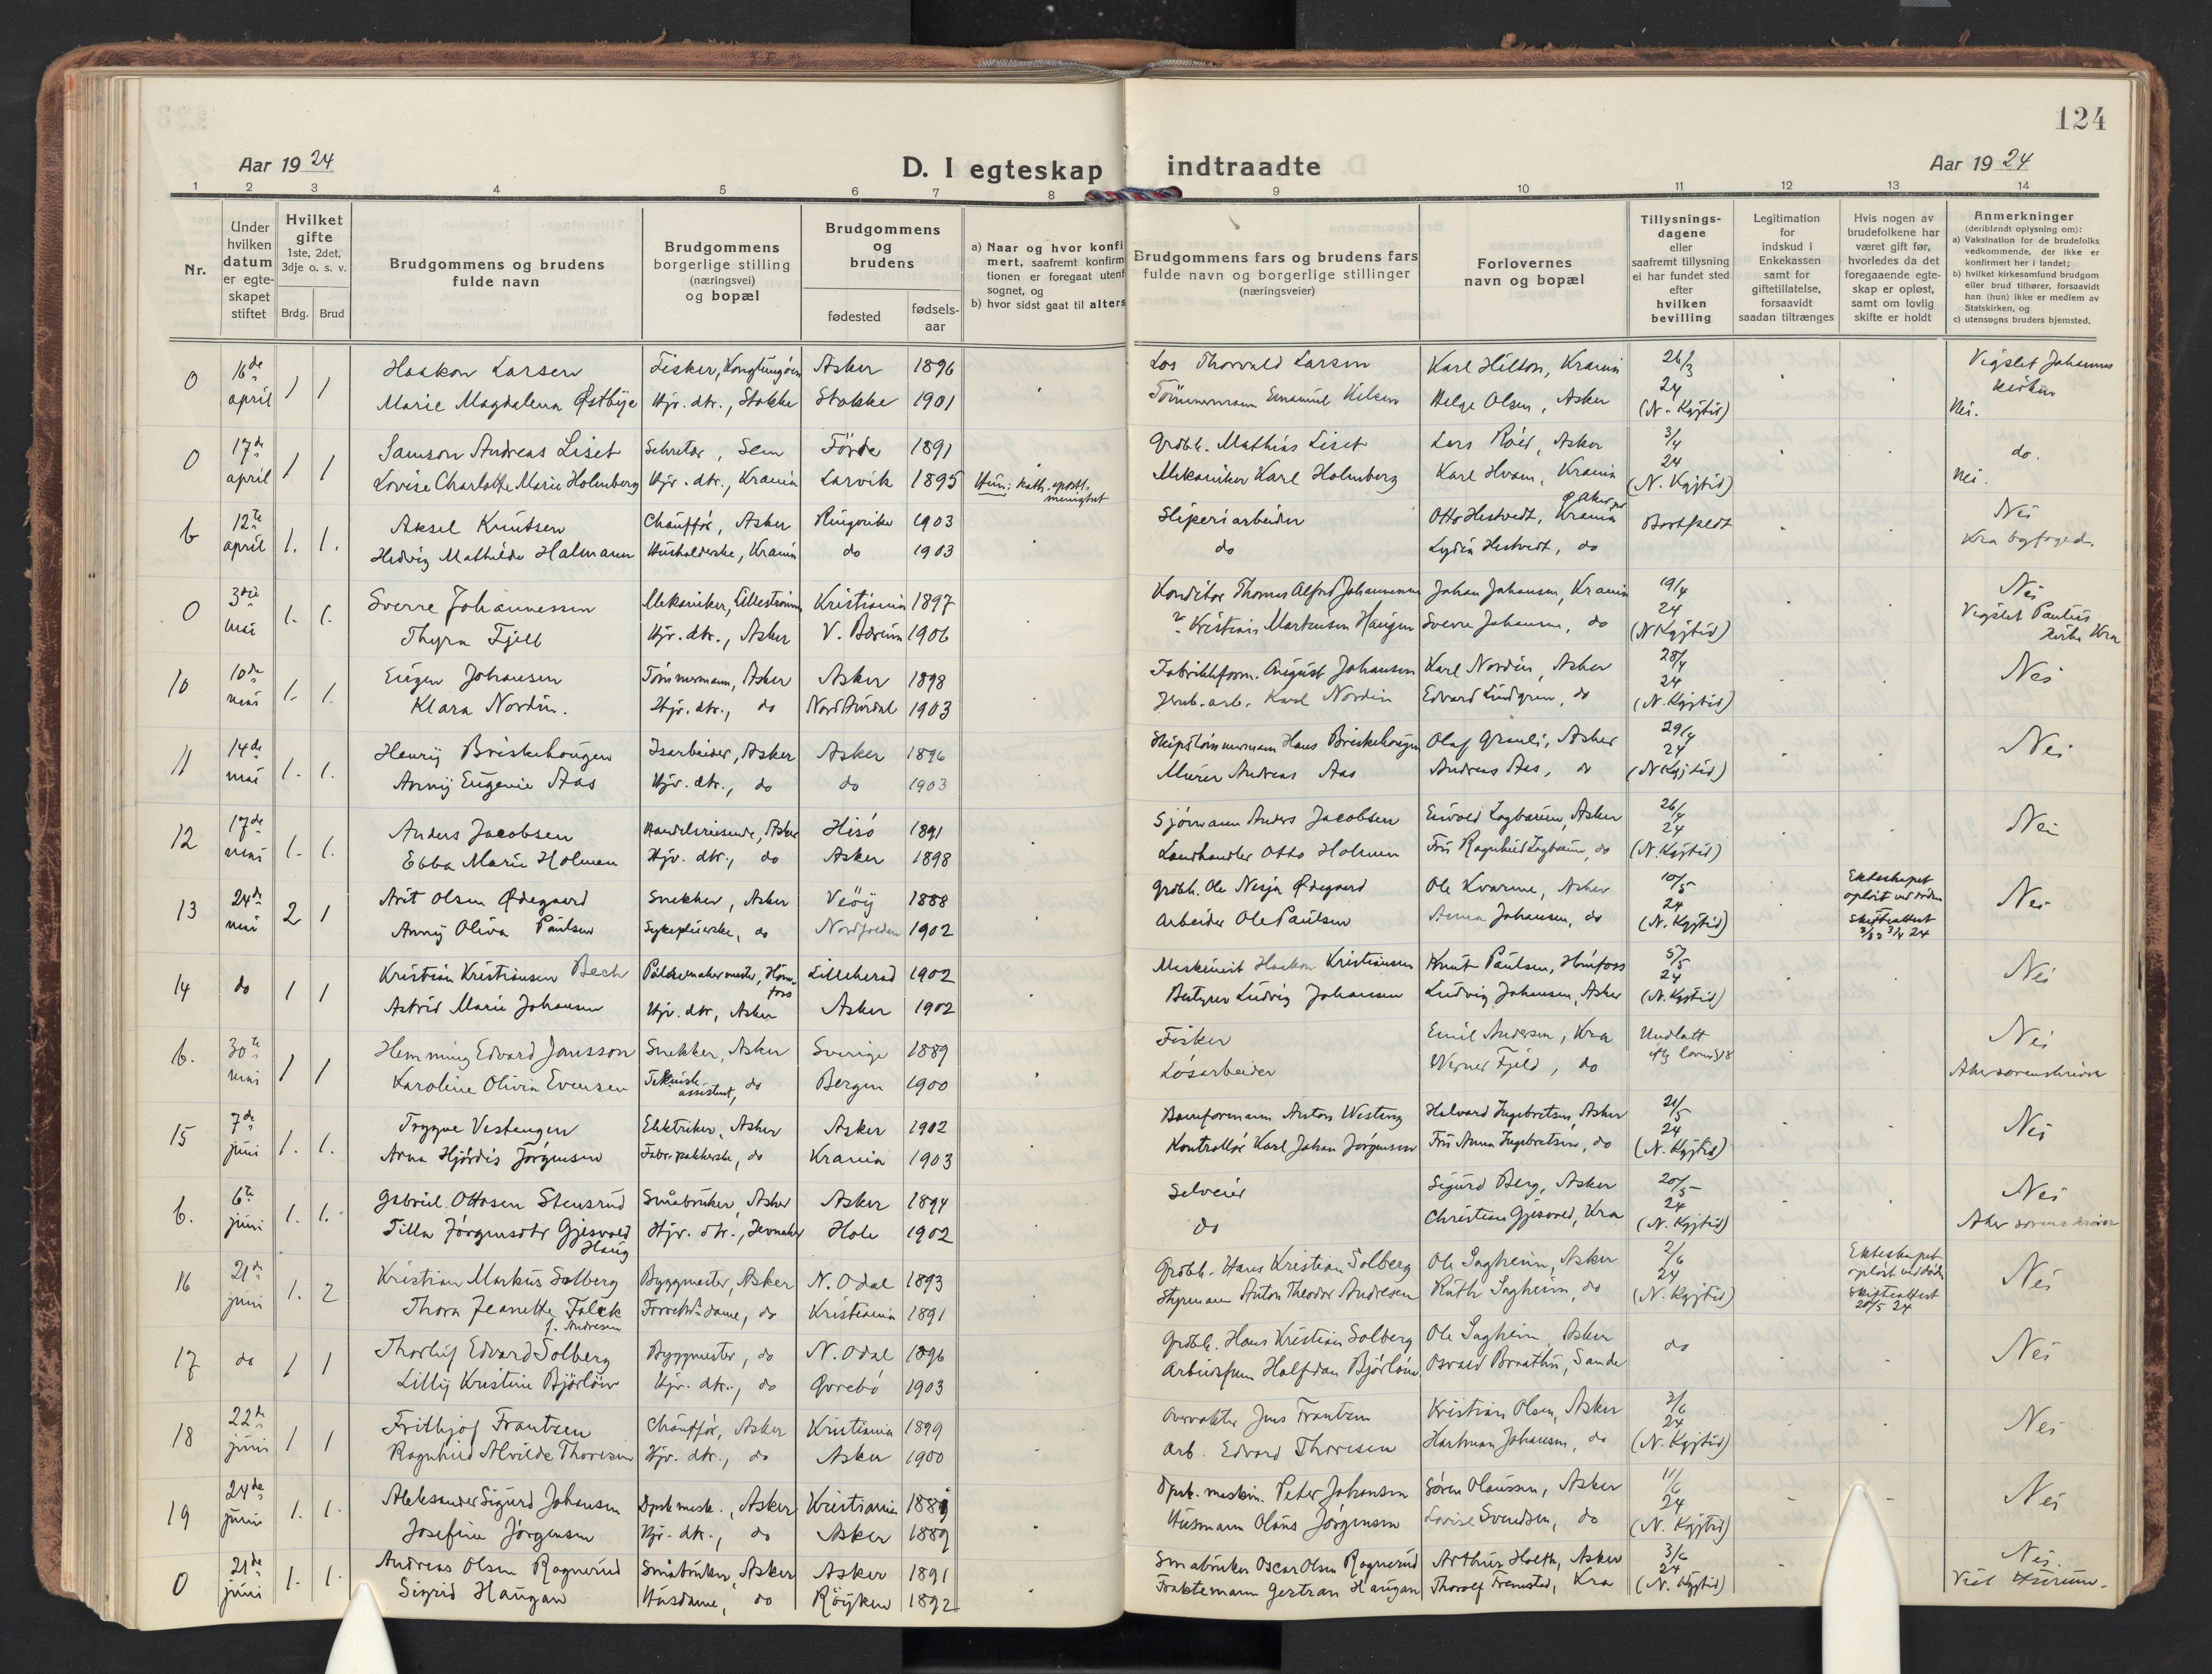 124
Aar 1924
D. I egteskap indtraadte
Aar 1924
1 2 3 4 5 6 7 8 9 10 11 12 13 14
Nr.
Under hvilken datum er egte-skapet stiftet
Hvilket gifte 1ste, 2det, 3dje o. s. v.
Brdg. Brud
Brudgommens og brudens fulde navn
Brudgommens borgerlige stilling (næringsvei) og bopæl
Brudgommens og brudens
fødested
fødsels-aar
a) Naar og hvor konfi mert, saafremt konfirm tionen er foregaat utenf sognet, og
b) hvor sidst gaat til alters
Brudgommens fars og brudens fars fulde navn og borgerlige stillinger (næringsveier)
Forlovernes navn og bopæl
Tillysnings-dagene eller saafremt tillysning ei har fundet sted efter hvilken bevilling
Legitimation for indskud i Enkekassen samt for giftetillatelse, forsaavidt saadan tiltrænges
Hvis nogen av brudefolkene har været gift før, hvorledes da det foregaaende egte-skap er opløst, samt om lovlig skifte er holdt
Anmerkninger (deriblandt oplysning om):
a) Vaksination for de brudefolks vedkommende, der ikke er konfirmert her i landet;
b) hvilket kirkesamfund brudgom eller brud tilhører, forsaavidt han (hun) ikke er medlem av Statskirken, og
c) utensogns bruders hjemsted.
0 16de april 1 1 Haakon Larsen Fisker, Asker 1896 Los Thorvald Larsen Karl Hilton, Krania 26/3 24 (N. Kgjtid) Vigslet Johannes kirken
Marie Magdalena Østbye Hjv. dtr., Stokke Stokke 1901 Tömmermann Emanuel Helge Olsen, Asker Nei.
0 17de april 1 1 Samson Andreas Liset Sekretær, Sem Förde 1891 Grdbr. Mathias Liset Lars Röed, Asker 3/4 24 (N. Kgjtid) do.
Lovise Charlotte Marie Holmberg Hjv. dtr., Krania Larvik 1895 Hun: kath. apost. menighet Mekaniker Karl Holmberg Karl Hvam, Krania Nei.
b 12te april 1. 1. Aksel Knutsen Chauffør, Asker Ringerike 1903 Sliperiarbeider Otto Hestvedt, Krania Bortfaldt Nei
Hedvig Mathilde Halmann Husholderske, Krania do 1903 do Lydia Hestvedt, do Kra byfoged.
0 3die mai 1. 1. Sverre Johannessen Mekaniker, Lilleström Kristiania 1897 Konditor Thomas Alfred Johannessen Johan Johansen, Krania 19/4 24 (N Kgjtid) Nei
Thyra Fjell Hjv. dtr., Asker V. Bærum 1906 Kristinis Martensen Haugen Sverre Johansen, do Vigslet Paulus kirke Kra
10 10de mai 1. 1. Eugen Johansen Tömmermann, Asker Asker 1898 Fabrikkform. August Johansen Karl Nordin, Asker 28/4 24 (N. Kgjtid) Nei
Klara Nordin. Hjv. dtr., do Nord Aurdal 1903 Jernb. arb. Karl Nordin Edvard Lindgren, do
11 14de mai 1. 1. Henry Briskehougen Isarbeider, Asker Asker 1896 Skipstömmermann Hans Briskehougen Olaf Granli, Asker 29/4 24 (N Kgjtid) Nei
Anny Eugenie Aas Hjv. dtr., do do 1903 Murer Andreas Aas Andreas Aas, do
12 17de mai 1. 1. Anders Jacobsen Handelsreisende, Asker Hisö 1891 Sjömann Anders Jacobsen Eivold Lagbaum, Asker 26/4 24 (N. Kgjtid) Nei
Ebba Marie Holmen Hjv. dtr., do Asker 1898 Landhandler Otto Holmen Fru Ragnhild Lagbaum, do
13 24de mai 2 1 Arit Olsen Ødegaard Snekker, Asker Veöy 1888 Grdbr. Ole Nesja Ødegaard Ole Kvarme, Asker 10/5 24 (N. Kgjtid) Ekteskapet opløst ved döden Skifteattest Nei
Anny Oliva Paulsen Sykepleierske, do Nordfolden 1902 Arbeider Ole Paulsen Anna Johansen, do
14 do 1 1 Kristian Kristiansen Bech Pölsemakermester, Hönefoss Lilleherad 1902 Maskinist Haakon Kristiansen Knut Paulsen, Hönfoss 5/5 24 (N. Kgjtid) Nei
Astrid Marie Johansen Hjv. dtr, Asker Asker 1902 Bestyrer Ludvig Johansen Ludvig Johansen, Asker
b. 30te mai 1 1 Hemming Edvard Jansson Snekker, Asker Sverige 1889 Fisker Emil Andersen, Kra Undlatt iflg lovens §18 Nei
Karoline Olivia Evensen Teknisk assistent, do Bergen 1900 Lösarbeider Verner Fjeld, do Aker sorenskriver
15 7de juni 1. 1. Trygve Vestengen Elektriker, Asker Asker 1902 Banformann Anton Westeng Halvard Ingebretsen, Asker 21/5 24 (N. Kgjtid) Nei
Arna Hjördis Jörgensen Fabr. pakkerske, do Krania 1903 Kontrollör Karl Johan Jörgensen Fru Anna Ingebretsen, do
b. 6te juni 1. 1. Gabriel Ottosen Stensrud Småbruker, Asker Asker 1894 Selveier Sigurd Berg, Asker 20/5 24 (N. Kgjtid) Nei
Tilla Jörgensdtr Gjesvold Haug Hjv. dtr., Jevnaker Hole 1902 do Christian Gjesvold, Kra Aker sorenskriver
16 21de juni 1. 2 Kristian Markus Solberg Byggmester, Asker N. Odal 1893 Grdbr. Hans Kristian Solberg Ole Sagheim, Asker 2/6 24 (N. Kgjtid) Ekteskapet opløst ved död Skifteattest 20/5 24 Nei
Thora Jeanette Falck f. Andresen Forretn.dame, do Kristiania 1891 Styrmann Anton Theodor Andresen Ruth Sagheim, do
17 do 1 1 Thorleif Edvard Solberg Byggmester, do N. Odal 1896 Grdbr. Hans Kristian Solberg Ole Sagheim, Asker do Nei
Lilly Kristine Björlöw Hjv. dtr., do Övrebö 1903 Arbeidsform Halfdan Björlöw Osvald Braathen, Sande
18 22de juni 1 1 Frithjof Frantzen Chauffør, Asker Kristiania 1899 Overvakter Jens Frantzen Kristian Olsen, Asker 3/6 24 (N. Kgjtid) Nei
Ragnhild Alvilde Thoresen Hjv. dtr., do Asker 1900 Arb. Edvard Thoresen Hartman Johansen, do
19 24de juni 1. 1. Aleksander Sigurd Johansen Dpsk. mask., Asker Kristiania 1889 Dpsk. maskin. Peter Johansen Sören Olaussen, Asker 11/6 24 (N. Kgjtid) Nei
Josefine Jörgensen Hjv. dtr., do Asker 1889 Husmann Olaus Jörgensen Lovise Svendsen, do
0 21de juni 1. 1. Andreas Olsen Ragnerud Småbruker, Asker Asker 1891 Småbruker Oscar Olsen Ragnerud Arthur Holth, Asker 3/6 24 (N. Kgjtid) Nei.
Sigrid Haugan Husdame, do Röyken 1892 Fraktemann Gertran Haugan Thorolf Fremstad, Kra Viet Hurum.